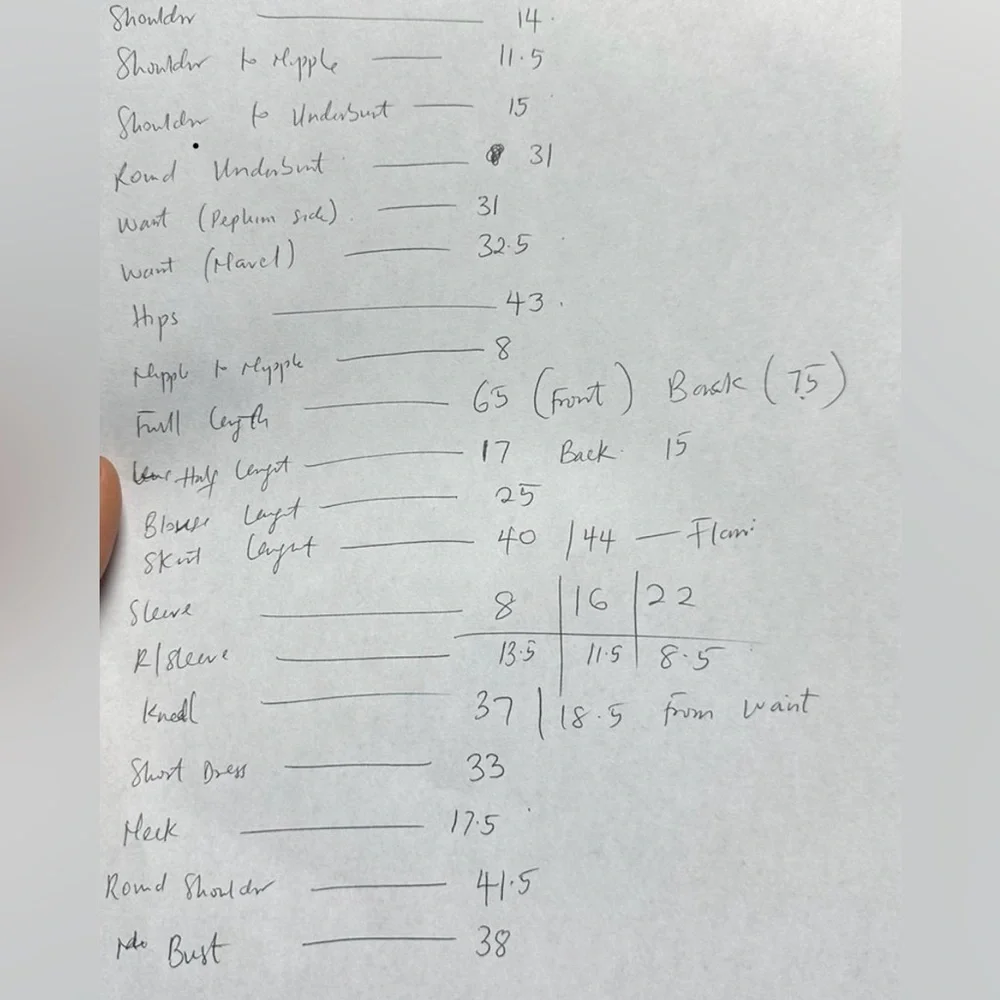 Shoulder 14
Shoulder to Nipple 11.5
Shoulder to Underbust 15
Round Underbust 31
Waist (Peplum side) 31
Waist (Navel) 32.5
Hips 43
Nipple to Nipple 8
Full length 65 (Front) Back (75)
Half lenght 17 Back 15
Blouse Lenght 25
Skirt lenght 40 / 44 —
Sleeve 8 | 16 | 22
R/Sleeve 13.5 | 11.5 | 8.5
37 | 18.5 From waist
Short Dress 33
Neck 17.5
Round Shoulder 41.5
Bust 38